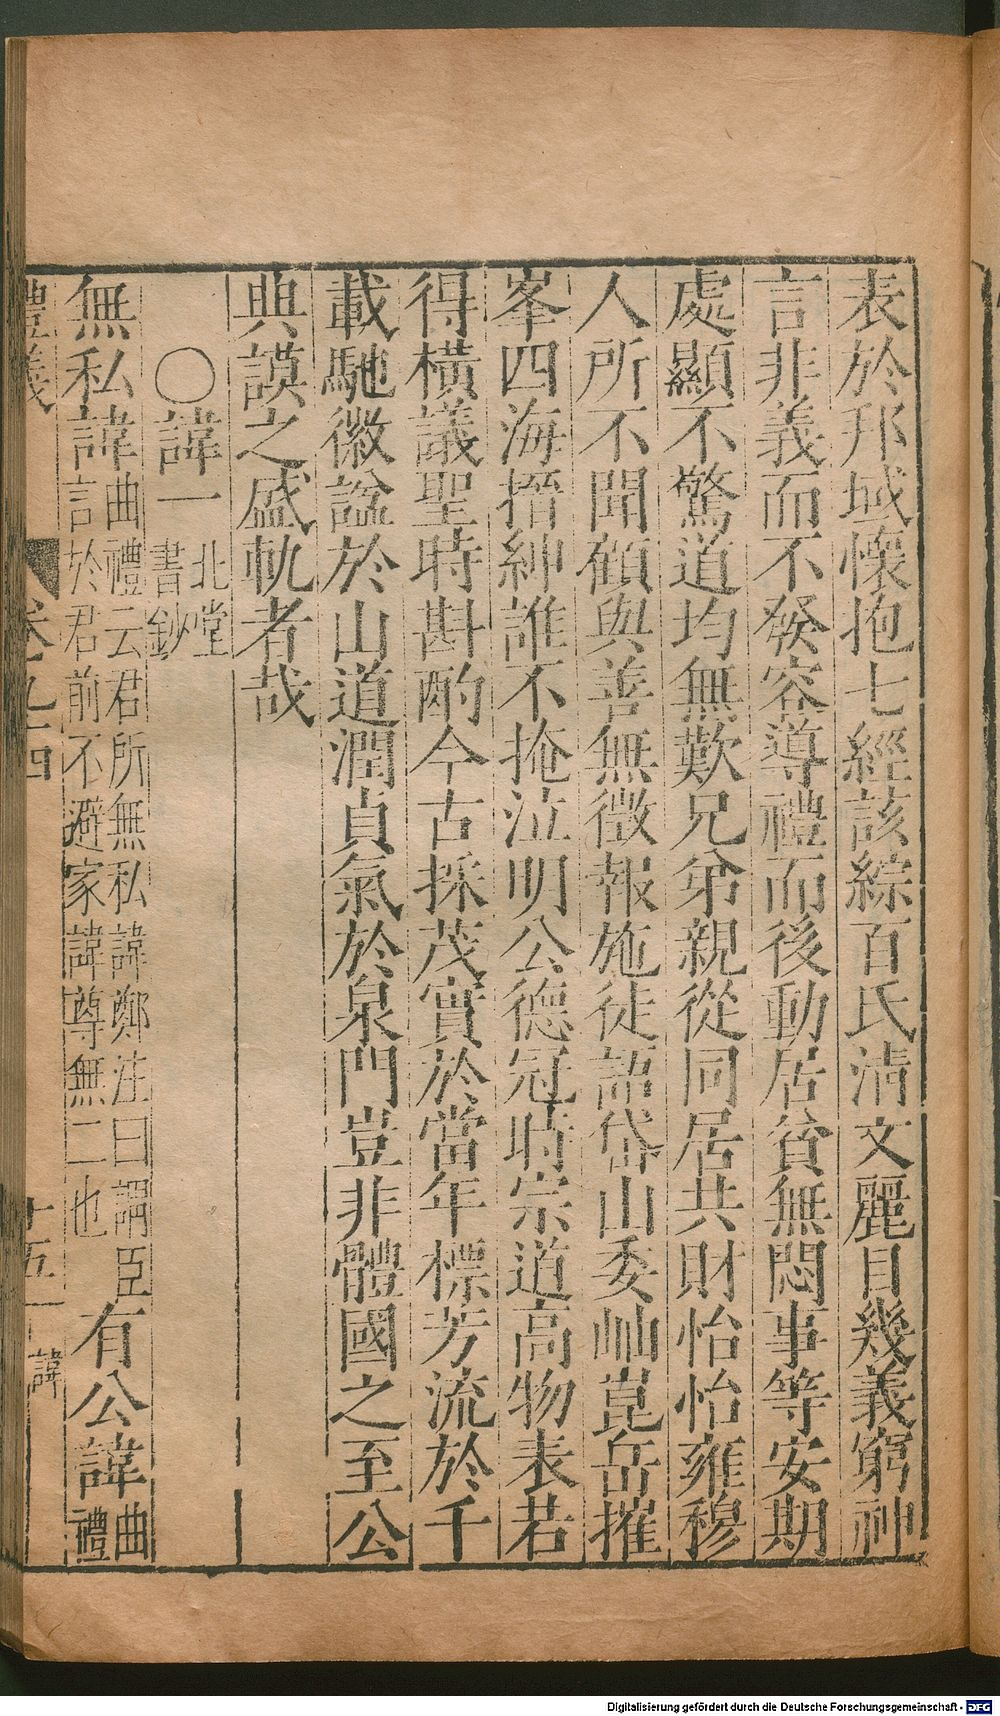 表於邦域懷抱七經該綜百氏清文麗目幾義窮神
言非義而不發容導禮而後動居貧無悶事等安期
處顯不驚道均無歎兄弟親從同居共財怡怡雍穆
人所不聞顧與善無徵報施徒語岱山委岫崑岳摧
峯四海搢紳誰不掩泣明公德冠時宗道高物表若
得橫議聖時斟酌今古採茂實於當年標芳流於千
載馳徽諡於山道潤貞氣於泉門豈非體國之至公
典謨之盛軌者哉
〇諱一
北堂
書鈔
無私諱
曲禮云君所無私諱鄭注曰謂臣
言於君前不避家諱尊無二也
有公諱
曲
禮
禮義 卷九四 十五 諱
Digitalisierung gefördert durch die Deutsche Forschungsgemeinschaft - DFG